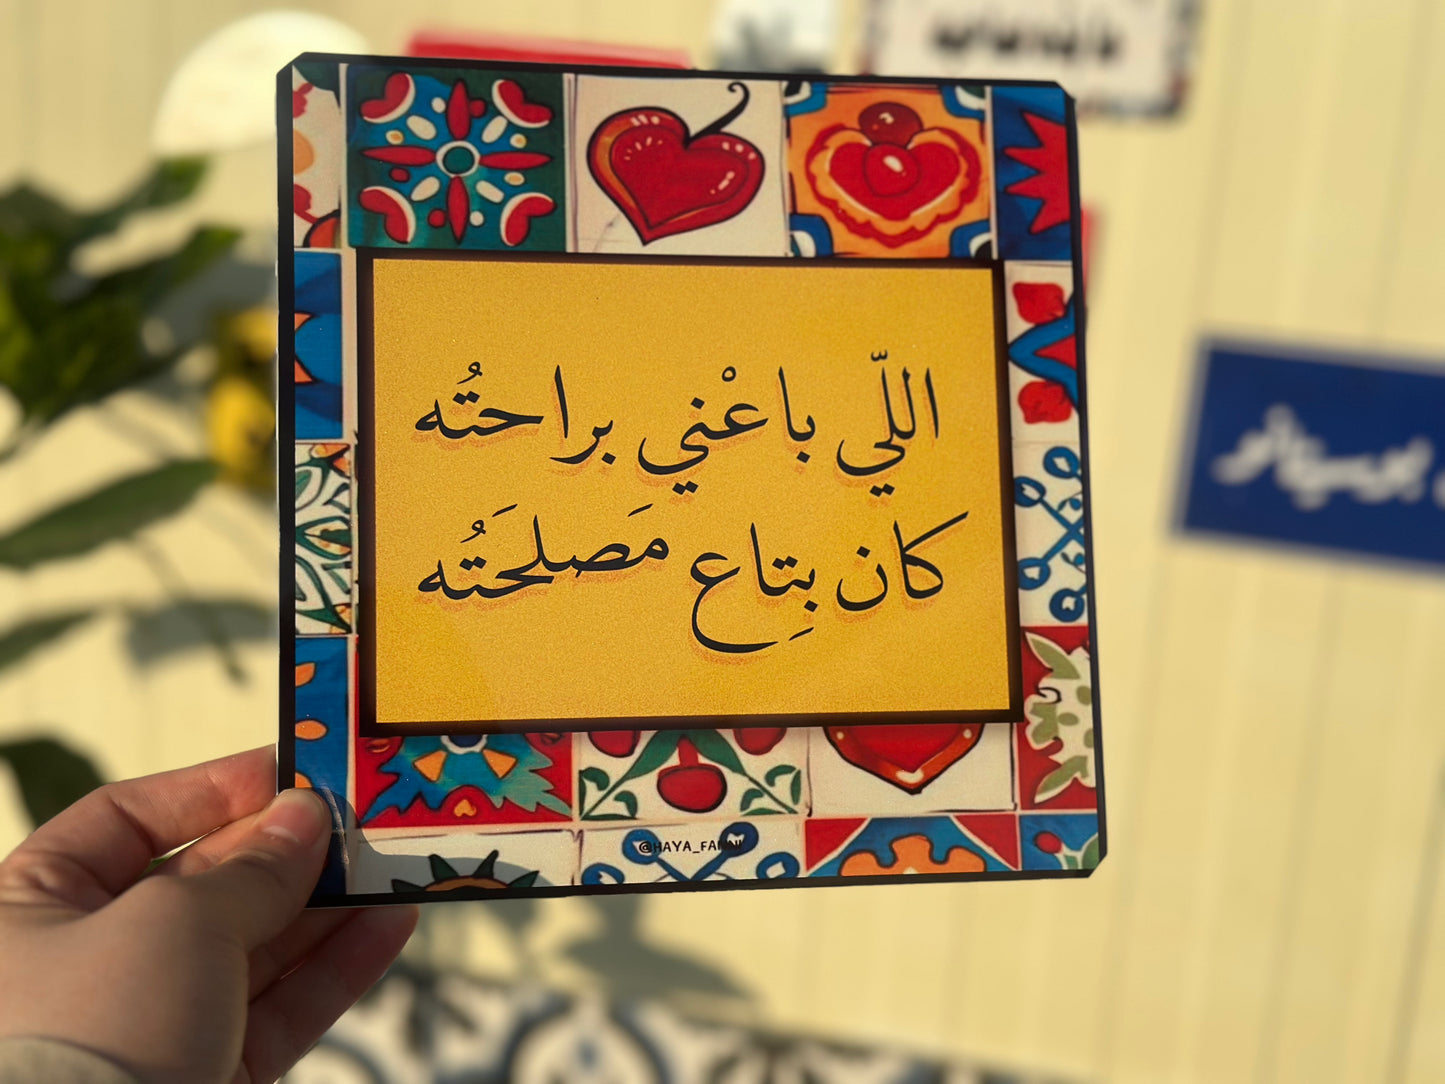 اللّي باعْني براحتُه
كان بِتاع مَصلَحتُه
@HAYA_FANNI